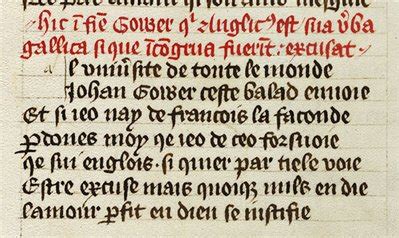 hic i͂ fi͂e Gower qͥ Anglicꝰ est sua v͂ba
gallica si que i͂co͂grua fuerint. excusat
al vniu͂site de toute le monde
Johan Gower ceste balad enuoie
Et si ieo nay de francois la faconde
ꝑdones moy qe ieo de ceo forsuoie
qe sui englois. si quier par tiele voie
Estre excuse mais quoiqe nuls en die
lamour ꝑfit en dieu se iustifie